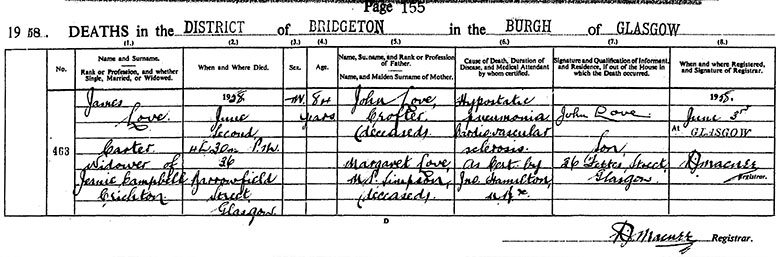 Page 155
1958. DEATHS in the DISTRICT of BRIDGETON in the BURGH of GLASGOW
(1.) (2.) (3.) (4.) (5.) (6.) (7.) (8.)
No.
Name and Surname.
Rank or Profession, and whether Single, Married, or Widowed.
When and Where Died.
Sex.
Age.
Name, Surname, and Rank or Profession of Father.
Name, and Maiden Surname of Mother.
Cause of Death, Duration of Disease, and Medical Attendant by whom certified.
Signature and Qualification of Informant, and Residence, if out of the House in which the Death occurred.
When and where Registered, and Signature of Registrar.
463
James
Love
Carter
Widower of
Jeanie Campbell
Crichton
1958
June
Second
4h. 30m P.M.
36
Barrowfield
Street
Glasgow
M.
84
years
John Love,
Crofter
(deceased)
Margaret Love,
M.S. Simpson,
(deceased).
Hypostatic
pneumonia
Cardiovascular
sclerosis.
As Cert. by
Jno. Hamilton,
John Love
Son
Street,
Glasgow.
1958.
June 3rd
At GLASGOW
Registrar.
D
Registrar.